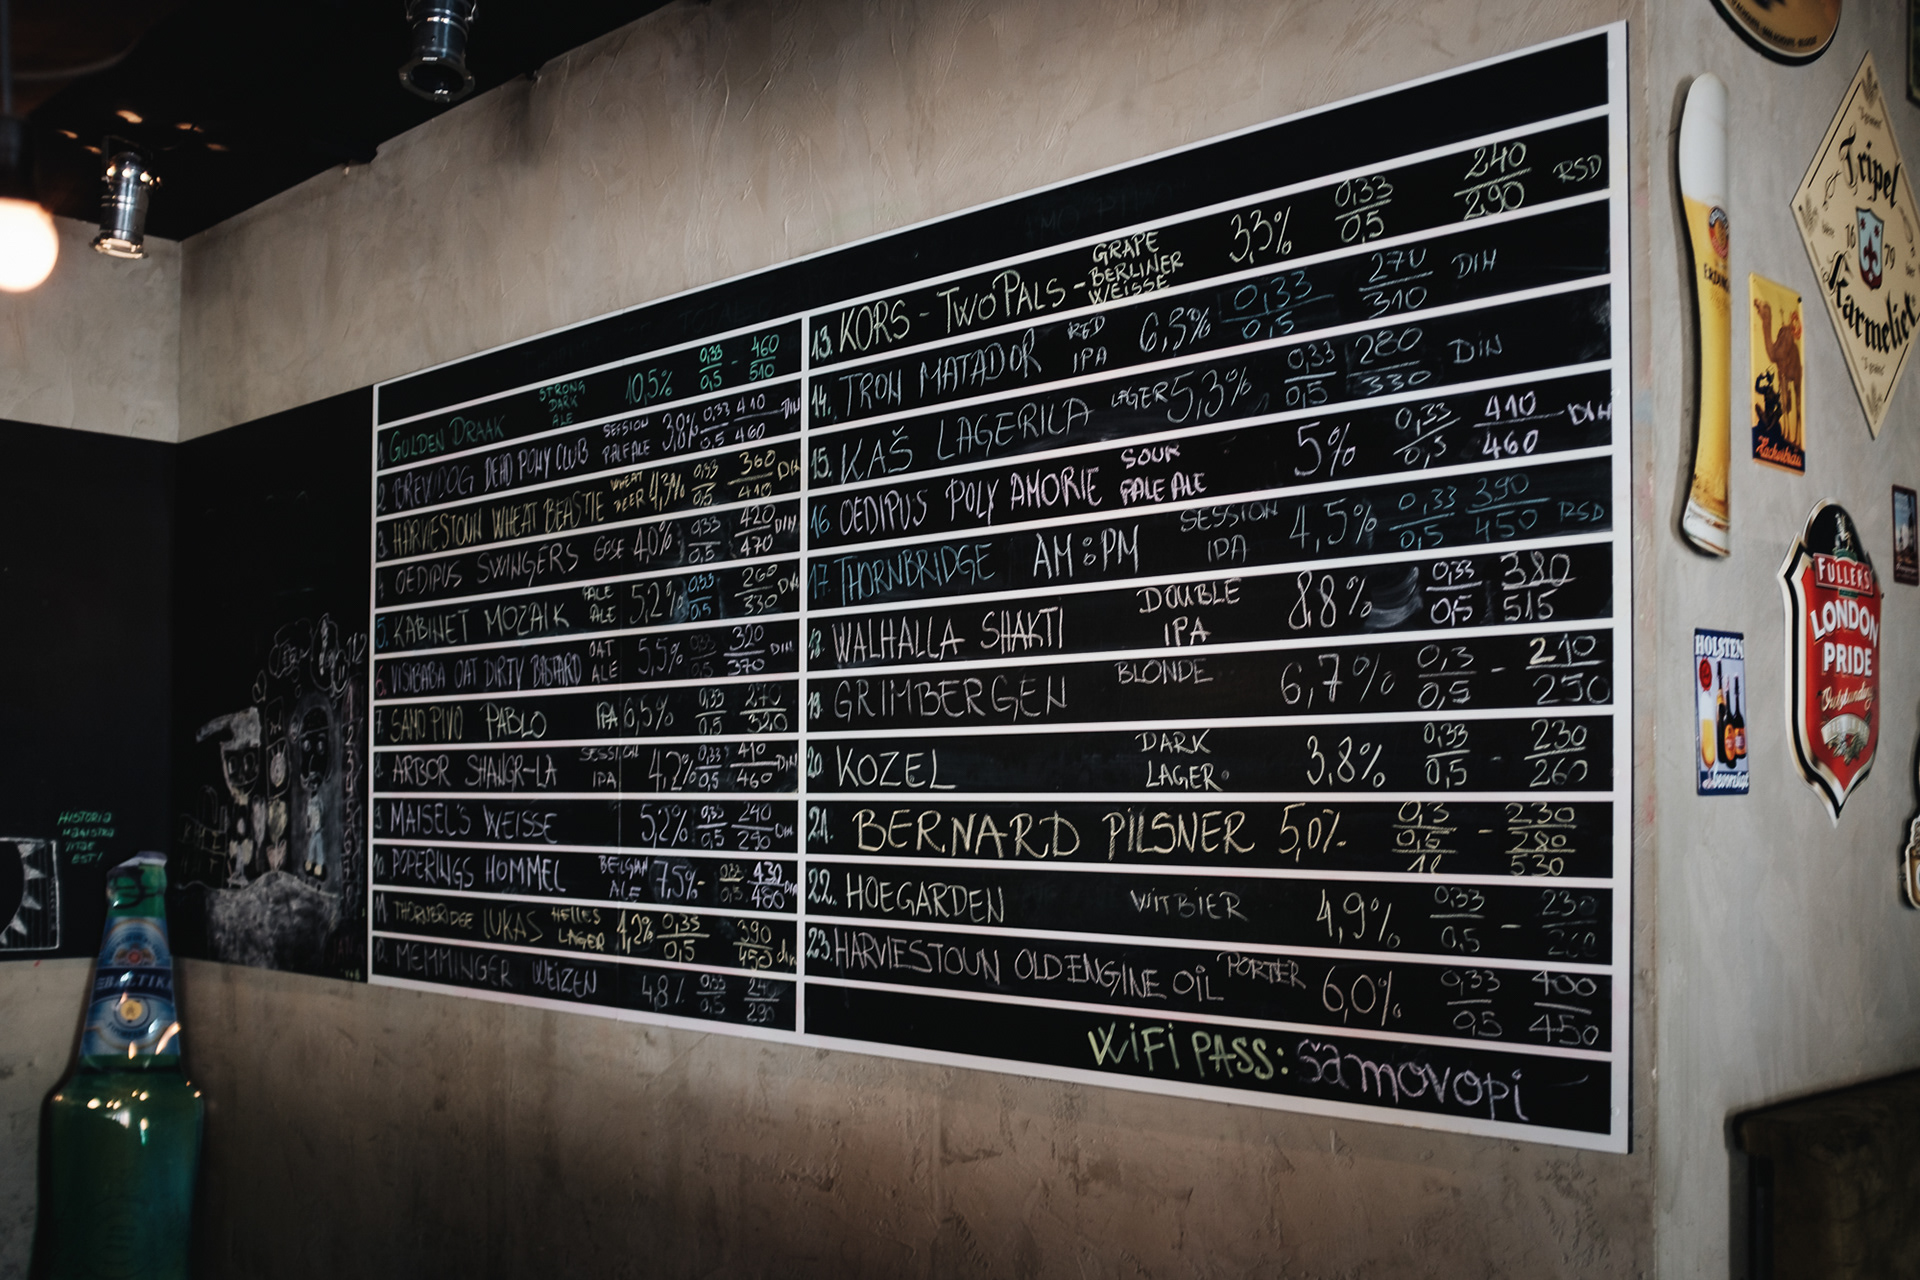 1. GULDEN DRAAK STRONG DARK ALE 10,5% 0,33 0,5 - 460 510
2. BREWDOG DEAD PONY CLUB SESSION PALE ALE 3,8% 0,33 0,5 410 460 DIN
3. HARVIESTOUN WHEAT BEASTIE WHEAT BEER 4,3% 0,33 0,5 360 410 DIN
4. OEDIPUS SWINGERS GOSE 4,0% 0,33 0,5 420 470 DIN
5. KABINET MOZAIK PALE ALE 5,2% 0,33 0,5 260 330 DIN
6. VISIBABA OAT DIRTY BASTARD OAT ALE 5,5% 0,33 0,5 320 370 DIN
7. SAND PIVO PABLO IPA 6,5% 0,33 0,5 270 320
8. ARBOR SHANGR-LA SESSION IPA 4,2% 0,33 0,5 410 460 DIN
9. MAISEL'S WEISSE 5,2% 0,33 0,5 240 290 DIN
10. POPERINGS HOMMEL BELGIAN ALE 7,5% - 0,33 0,5 430 480 DIN
11. THORNBRIDGE LUKAS HELLES LAGER 4,2% 0,33 0,5 390 450 din
12. MEMMINGER WEIZEN 4,8% 0,33 0,5 240 290
13. KORS - TWO PALS - GRAPE BERLINER WEISSE 3,3% 0,33 0,5 240 290 RSD
14. TRON MATADOR RED IPA 6,5% 0,33 0,5 270 310 DIN
15. KAŠ LAGERICA LAGER 5,3% 0,33 0,5 280 330 DIN
16 OEDIPUS POLY AMORIE SOUR PALE ALE 5% 0,33 0,5 410 460 DIN
17. THORNBRIDGE AM:PM SESSION IPA 4,5% 0,33 0,5 390 450 RSD
18. WALHALLA SHAKTI DOUBLE IPA 8,8% 0,33 0,5 380 515
19. GRIMBERGEN BLONDE 6,7% 0,3 0,5 - 210 250
20. KOZEL DARK LAGER 3,8% 0,33 0,5 - 230 260
21. BERNARD PILSNER 5,0% 0,3 0,5 1l - 230 280 530
22. HOEGARDEN WITBIER 4,9% 0,33 0,5 - 230
23. HARVIESTOUN OLD ENGINE OIL PORTER 6,0% 0,33 0,5 400 450
WiFi PASS: šamovopi
HISTORIA
MAGISTRA
VITAE
EST!
Tripel
16 79
Karmeliet
FULLER'S
LONDON
PRIDE
Outstanding
HOLSTEN